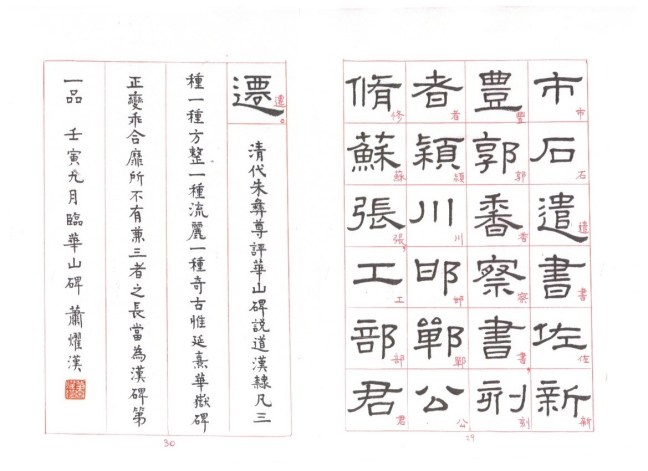 市石遣書佐新
市石遣書佐新
豐郭香察書刻
豐郭香察書,刻
者穎川邯鄲公
者穎川邯鄲公
脩蘇張工部君
修蘇張,工部君
29
遷
遷。
清代朱彝尊評華山碑説道漢隸凡三
種一種方整一種流麗一種奇古惟延熹華嶽碑
正變乖合靡所不有兼三者之長當為漢碑第
一品 壬寅九月臨華山碑 蕭燿漢
30